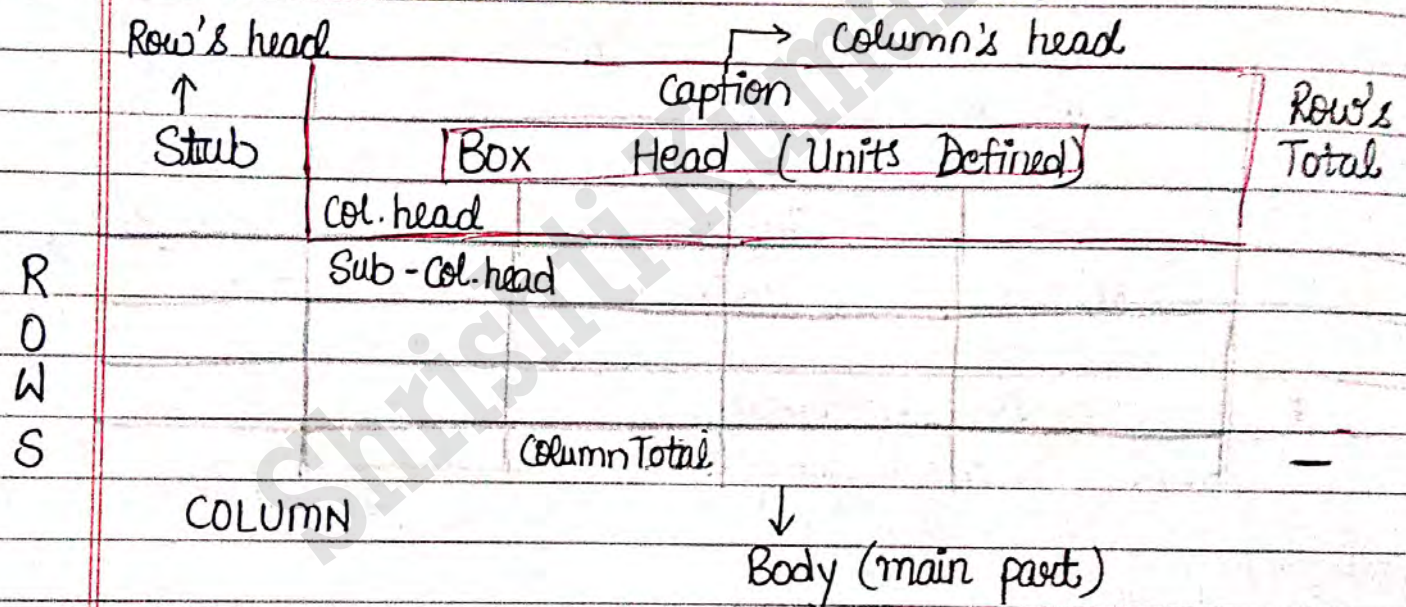 Row's head → Column's head
↑ Caption Row's
Stub Box Head (Units Defined) Total
Col. head
R Sub-Col. head
O
W
S Column Total —
COLUMN ↓
Body (main part)
Shrishti Kumar